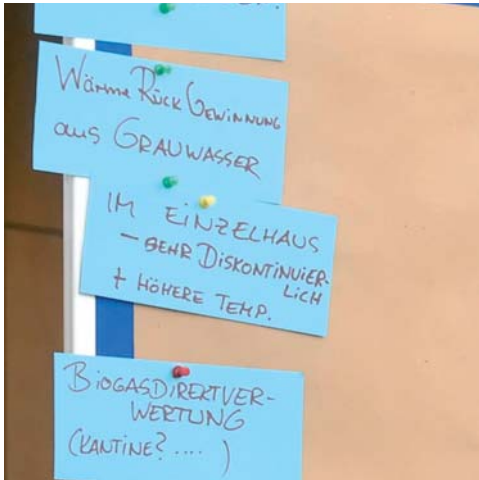 Wärme Rück Gewinnung
aus GRAUWASSER
IM EINZELHAUS
- SEHR DISKONTINUIER-
LICH
+ HÖHERE TEMP.
BIOGASDIREKTVER-
WERTUNG
(KANTINE? .... )